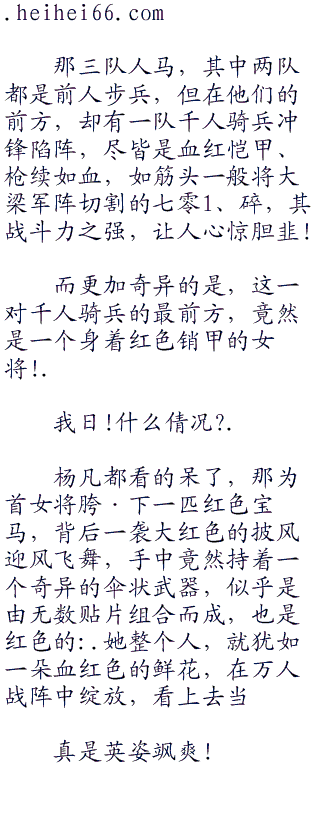 .heihei66.com
那三队人马，其中两队
都是前人步兵，但在他们的
前方，却有一队千人骑兵冲
锋陷阵，尽皆是血红恺甲、
枪续如血，如筋头一般将大
梁军阵切割的七零1、碎，其
战斗力之强，让人心惊胆韭！
而更加奇异的是，这一
对千人骑兵的最前方，竟然
是一个身着红色销甲的女
将！.
我日！什么倩况？.
杨凡都看的呆了，那为
首女将胯·下一匹红色宝
马，背后一袭大红色的披风
迎风飞舞，手中竟然持着一
个奇异的伞状武器，似乎是
由无数贴片组合而成，也是
红色的：.她整个人，就犹如
一朵血红色的鲜花，在万人
战阵中绽放，看上去当
真是英姿飒爽！